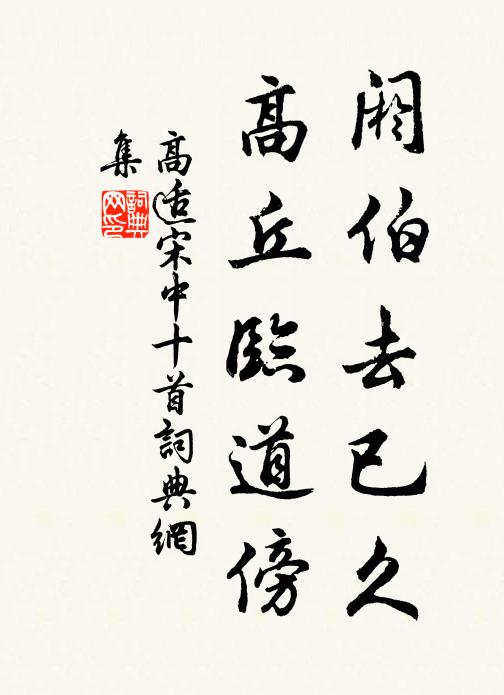 阏伯去已久
高丘臨道傍
高适宋中十首詞典網
集
詞典
网印